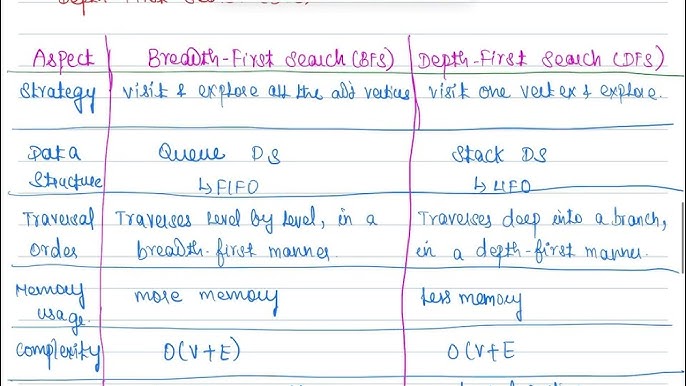 Depth-First Search (DFS)
Aspect Breadth-First Search (BFS) Depth-First Search (DFS)
Strategy visit & explore all the adj vertices visit one vertex & explore.
Data Queue DS Stack DS
Structure ↳ FIFO ↳ LIFO
Traversal Traverses level by level, in a Traverses deep into a branch,
Order breadth-first manner. in a depth-first manner.
Memory more memory Less memory
usage.
Complexity O(V+E) O(V+E